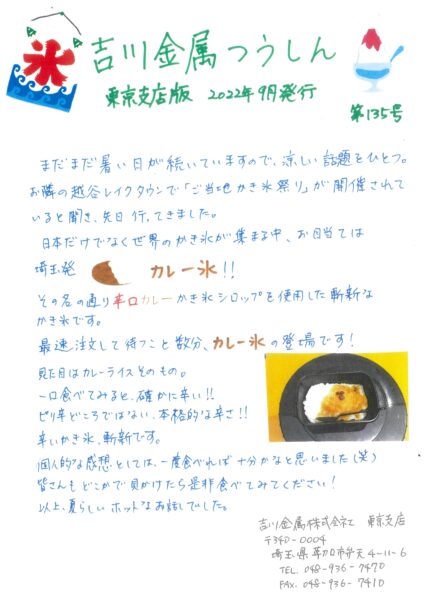 氷
吉川金属つうしん
東京支店版 2022年9月発行
第135号
まだまだ暑い日が続いていますので、涼しい話題をひとつ。
お隣の越谷レイクタウンで「ご当地かき氷祭り」が開催されて
いると聞き、先日行ってきました。
日本だけでなく世界のかき氷が集まる中、お目当ては
埼玉発 カレー氷!!
その名の通り辛口カレーかき氷シロップを使用した斬新な
かき氷です。
最速注文して待つこと数分、カレー氷の登場です!
見た目はカレーライスそのもの。
一口食べてみると、確かに辛い!!
ピリ辛どころではない、本格的な辛さ!!
辛いかき氷、斬新です。
個人的な感想としては、一度食べれば十分かなと思いました(笑)
皆さんもどこかで見かけたら是非食べてみてください!
以上、夏らしいホットなお話でした。
吉川金属株式会社 東京支店
〒340-0004
埼玉県草加市弁天4-11-6
TEL. 048-936-7470
FAX. 048-936-7410